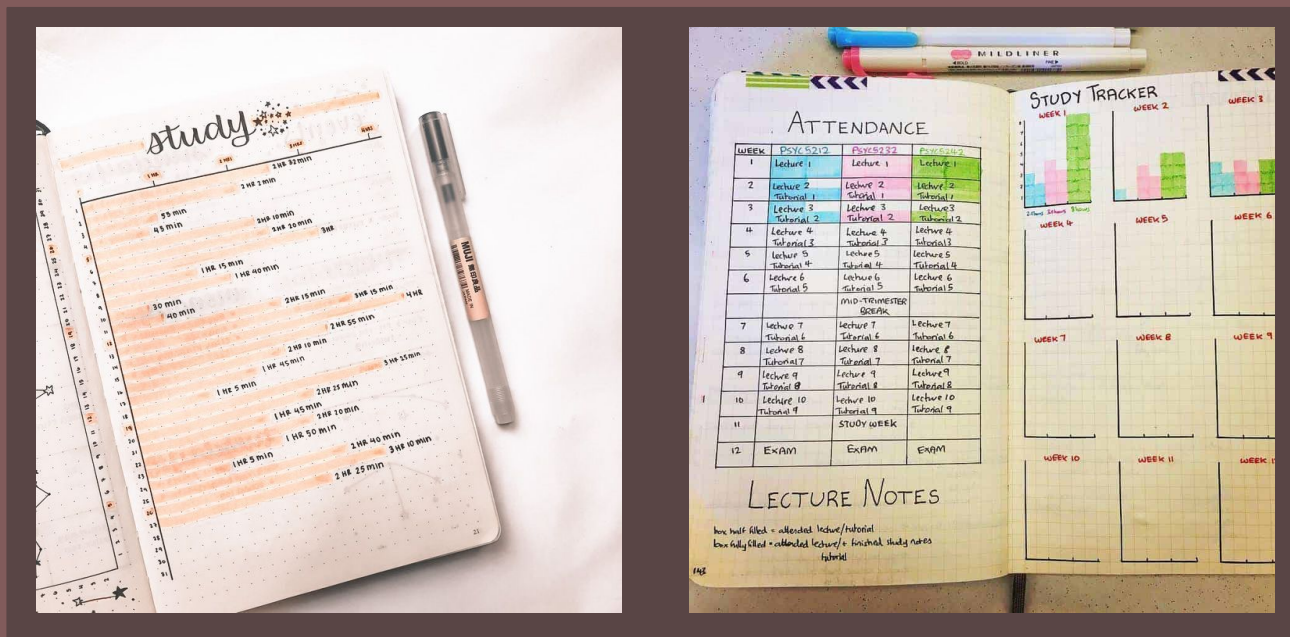 study
1 HR
2 HRS
3 HRS
2 HR 32 min
2 HR 2 min
53 min
45 min
2HR 10 min
2 HR 20 min
3HR
1 HR 15 min
1 HR 40 min
30 min
40 min
2 HR 15 min
3HR 15 min
4 HR
2 HR 55 min
2 HR 10 min
1 HR 45 min
3 HR 25 min
1 HR 5 min
2 HR 25 min
1 HR 45 min
2 HR 20 min
1 HR 50 min
1 HR 5 min
2 HR 40 min
3 HR 10 min
2 HR 25 min
21
MUJI 無印良品
MILDLINER
ATTENDANCE
WEEK PSYC5212 PSYC5232 PSYC5242
1 Lecture 1 Lecture 1 Lecture 1
2 Lecture 2 Lecture 2 Lecture 2
Tutorial 1 Tutorial 1 Tutorial 1
3 Lecture 3 Lecture 3 Lecture 3
Tutorial 2 Tutorial 2 Tutorial 2
4 Lecture 4 Lecture 4 Lecture 4
Tutorial 3 Tutorial 3 Tutorial 3
5 Lecture 5 Lecture 5 Lecture 5
Tutorial 4 Tutorial 4 Tutorial 4
6 Lecture 6 Lecture 6 Lecture 6
Tutorial 5 Tutorial 5 Tutorial 5
MID-TRIMESTER
BREAK
7 Lecture 7 Lecture 7 Lecture 7
Tutorial 6 Tutorial 6 Tutorial 6
8 Lecture 8 Lecture 8 Lecture 8
Tutorial 7 Tutorial 7 Tutorial 7
9 Lecture 9 Lecture 9 Lecture 9
Tutorial 8 Tutorial 8 Tutorial 8
10 Lecture 10 Lecture 10 Lecture 10
Tutorial 9 Tutorial 9 Tutorial 9
11 STUDY WEEK
12 EXAM EXAM EXAM
LECTURE NOTES
box half filled = attended lecture/tutorial
box fully filled = attended lecture/+ finished study notes
tutorial
143
STUDY TRACKER
WEEK 1 WEEK 2 WEEK 3
WEEK 4 WEEK 5 WEEK 6
WEEK 7 WEEK 8 WEEK 9
WEEK 10 WEEK 11 WEEK